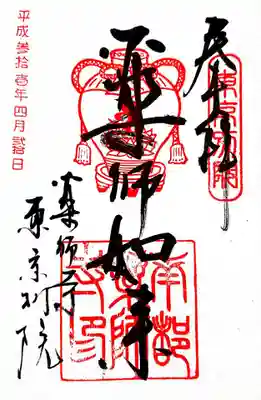 奉拝
東京別院
薬師如来
南都
薬師
寺印
薬師寺
東京別院
平成参拾壱年四月 日